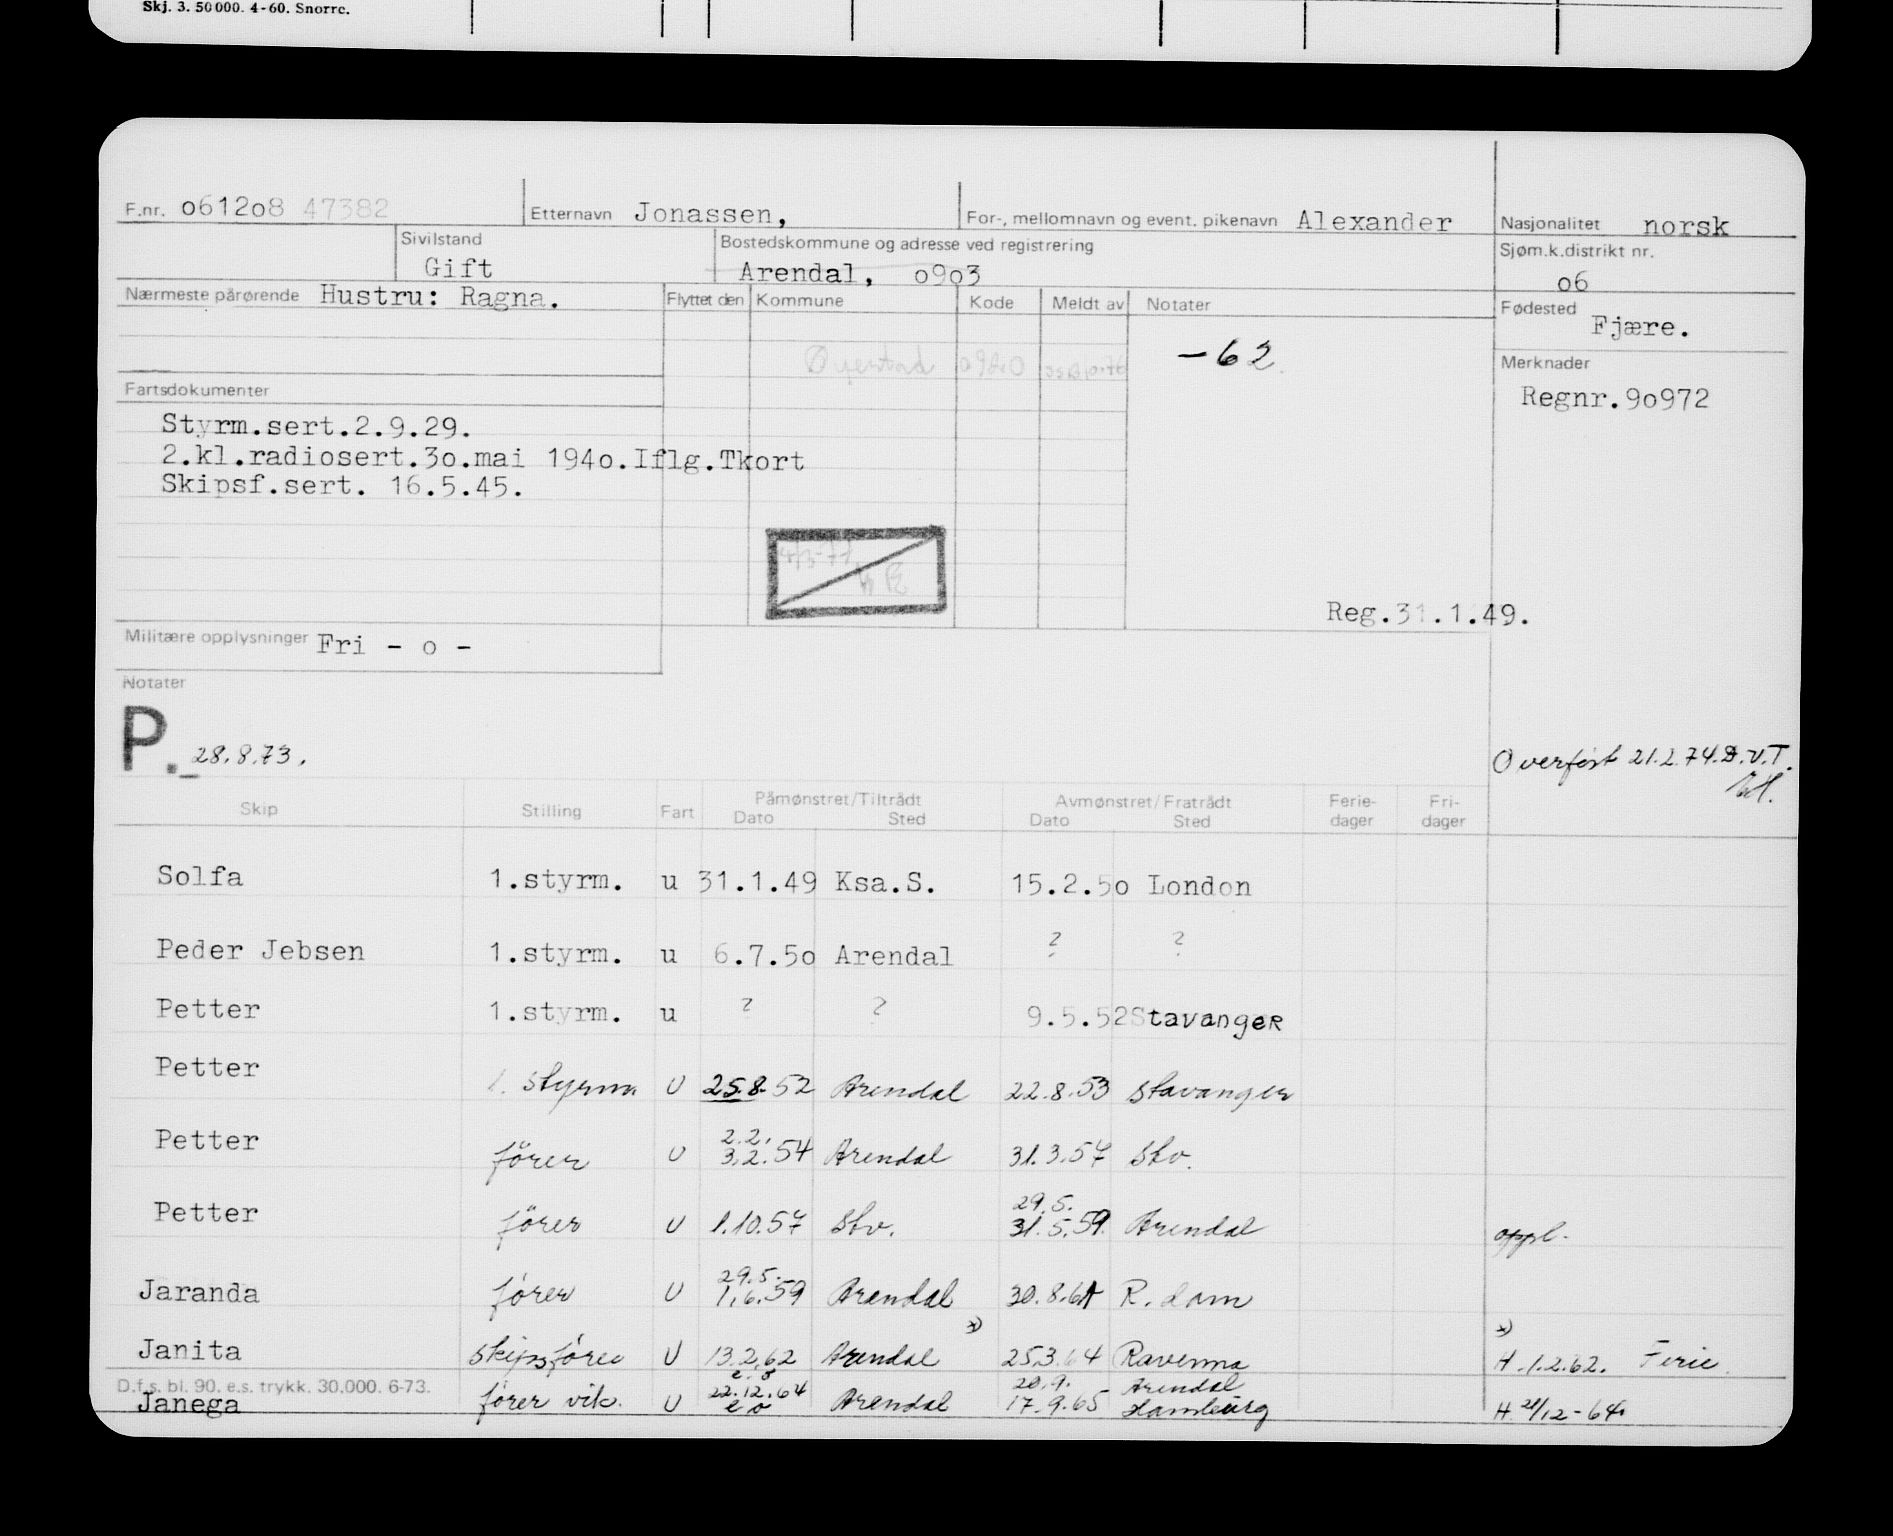 Skj. 3. 50000. 4-60. Snorre.
F.nr. 061208 47382 Etternavn Jonassen, For-, mellomnavn og event. pikenavn Alexander Nasjonalitet norsk
Sivilstand Gift Bostedskommune og adresse ved registrering Arendal, 0903 Sjøm.k.distrikt nr. 06
Nærmeste pårørende Hustru: Ragna. Flyttet den Kommune Kode Meldt av Notater Fødested Fjære.
Øyestad 0920 -62 Merknader
Fartsdokumenter Regnr.90972
Styrm.sert.2.9.29.
2.kl.radiosert.30.mai 1940.Iflg.Tkort
Skipsf.sert. 16.5.45.
4/3-77
Reg.31.1.49.
Militære opplysninger Fri - o -
Notater
P. 28.8.73. Overført 21.2.74.D.V.T.
Skip Stilling Fart Påmønstret/Tiltrådt Dato Sted Avmønstret/Fratrådt Dato Sted Ferie-dager Fri-dager
Solfa 1.styrm. u 31.1.49 Ksa.S. 15.2.50 London
Peder Jebsen 1.styrm. u 6.7.50 Arendal ? ?
Petter 1.styrm. u ? ? 9.5.52 Stavanger
Petter 1. styrm U 25.8.52 Arendal 22.8.53 Stavanger
Petter fører U 2.2. 3.2.54 Arendal 31.3.57 Stv.
Petter fører U 1.10.57 Stv. 29.5. 31.5.59. Arendal oppl.
Jaranda fører U 29.5. 1.6.59 Arendal 30.8.61 R.dam
Janita skipsfører U 13.2.62 Arendal x) 25.3.64 Ravenna x) H.1.2.62. Ferie
D.f.s. bl. 90. e.s. trykk. 30.000. 6-73.
Janega fører vik. U e.o 22.12.64 e o Arendal 20.9. 17.9.65 Arendal Hamburg H. 21/12-64